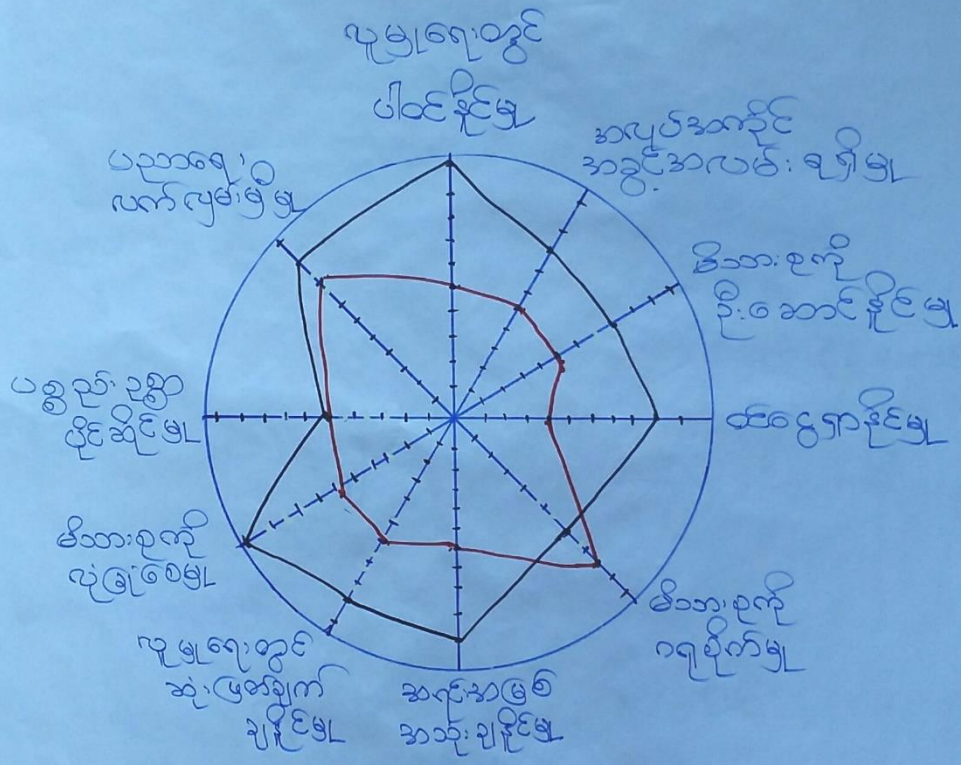 လူမှုရေးတွင်
ပါဝင်နိုင်မှု
အလုပ်အကိုင်
အခွင့်အလမ်းရရှိမှု
မိသားစုကို
ဦးဆောင်နိုင်မှု
ဝင်ငွေရှာနိုင်မှု
မိသားစုကို
ဂရုစိုက်မှု
အရင်းအမြစ်
အသုံးချနိုင်မှု
လူမှုရေးတွင်
ဆုံးဖြတ်ချက်
ချနိုင်မှု
မိသားစုကို
လုံခြုံစေမှု
ပစ္စည်းဥစ္စာ
ပိုင်ဆိုင်မှု
ပညာရေး
လက်လှမ်းမှီမှု